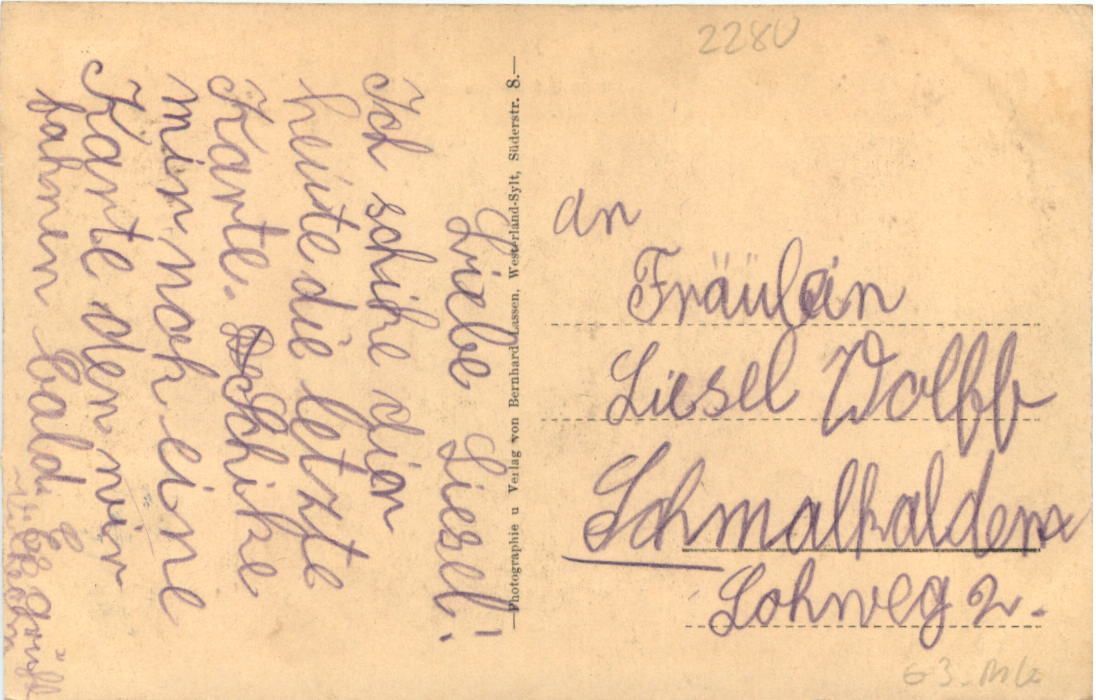 Liebe Liesel!
Ich schike dir
heute die letzte
Karte. Schike
mir noch eine
Karte den wir
fahren bald. Es grüßt
Photographie u Verlag von Bernhard Lassen, Westerland-Sylt, Süderstr. 8.
2280
an
Fräulein
Liesel Wolff
Schmalkalden
Lohweg 2.